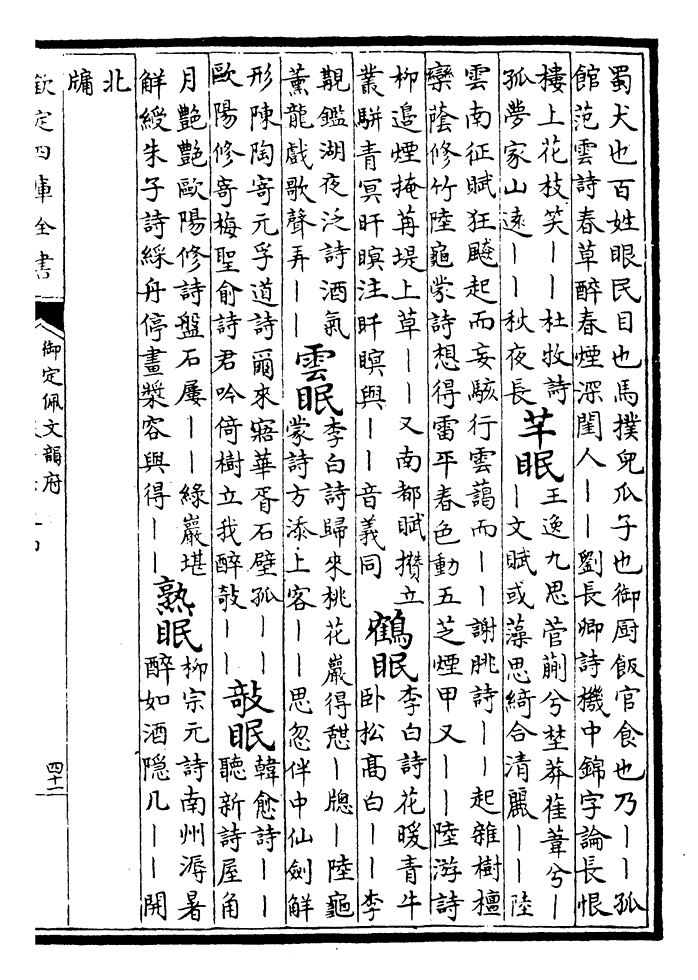 蜀犬也百姓眼民目也馬撲兒瓜子也御厨飯官食也乃｜｜孤
館范雲詩春草醉春煙深閨人｜｜劉長卿詩機中錦字論長恨
樓上花枝笑｜｜杜牧詩
孤夢家山遠｜｜秋夜長
芊眠
王逸九思菅蒯兮埜莽雚葦兮｜
｜文賦或藻思綺合清麗｜｜陸
雲南征賦狂飇起而妄駭行雲藹而｜｜謝朓詩｜｜起雜樹檀
欒蔭修竹陸龜蒙詩想得雷平春色動五芝煙甲又｜｜陸游詩
柳邉煙掩苒堤上草｜｜又南都賦攢立
叢駢青冥盰瞑注盰瞑與｜｜音義同
鶴眠
李白詩花暖青牛
卧松髙白｜｜李
覯鑑湖夜泛詩酒氣
薰龍戲歌聲弄｜｜
雲眠
李白詩歸來桃花巖得憇｜牕｜陸龜
蒙詩方添上客｜｜思忽伴中仙劍解
形陳陶寄元孚道詩爾來寤華胥石壁孤｜｜
歐陽修寄梅聖俞詩君吟倚樹立我醉敲｜｜
敲眠
韓愈詩｜｜
聽新詩屋角
月艶艶歐陽修詩盤石屢｜｜緑巖堪
解綬朱子詩綵舟停畫槳容與得｜｜
熟眠
柳宗元詩南州溽暑
醉如酒隠几｜｜開
北
牖
欽定四庫全書
御定佩文韻府
四十二